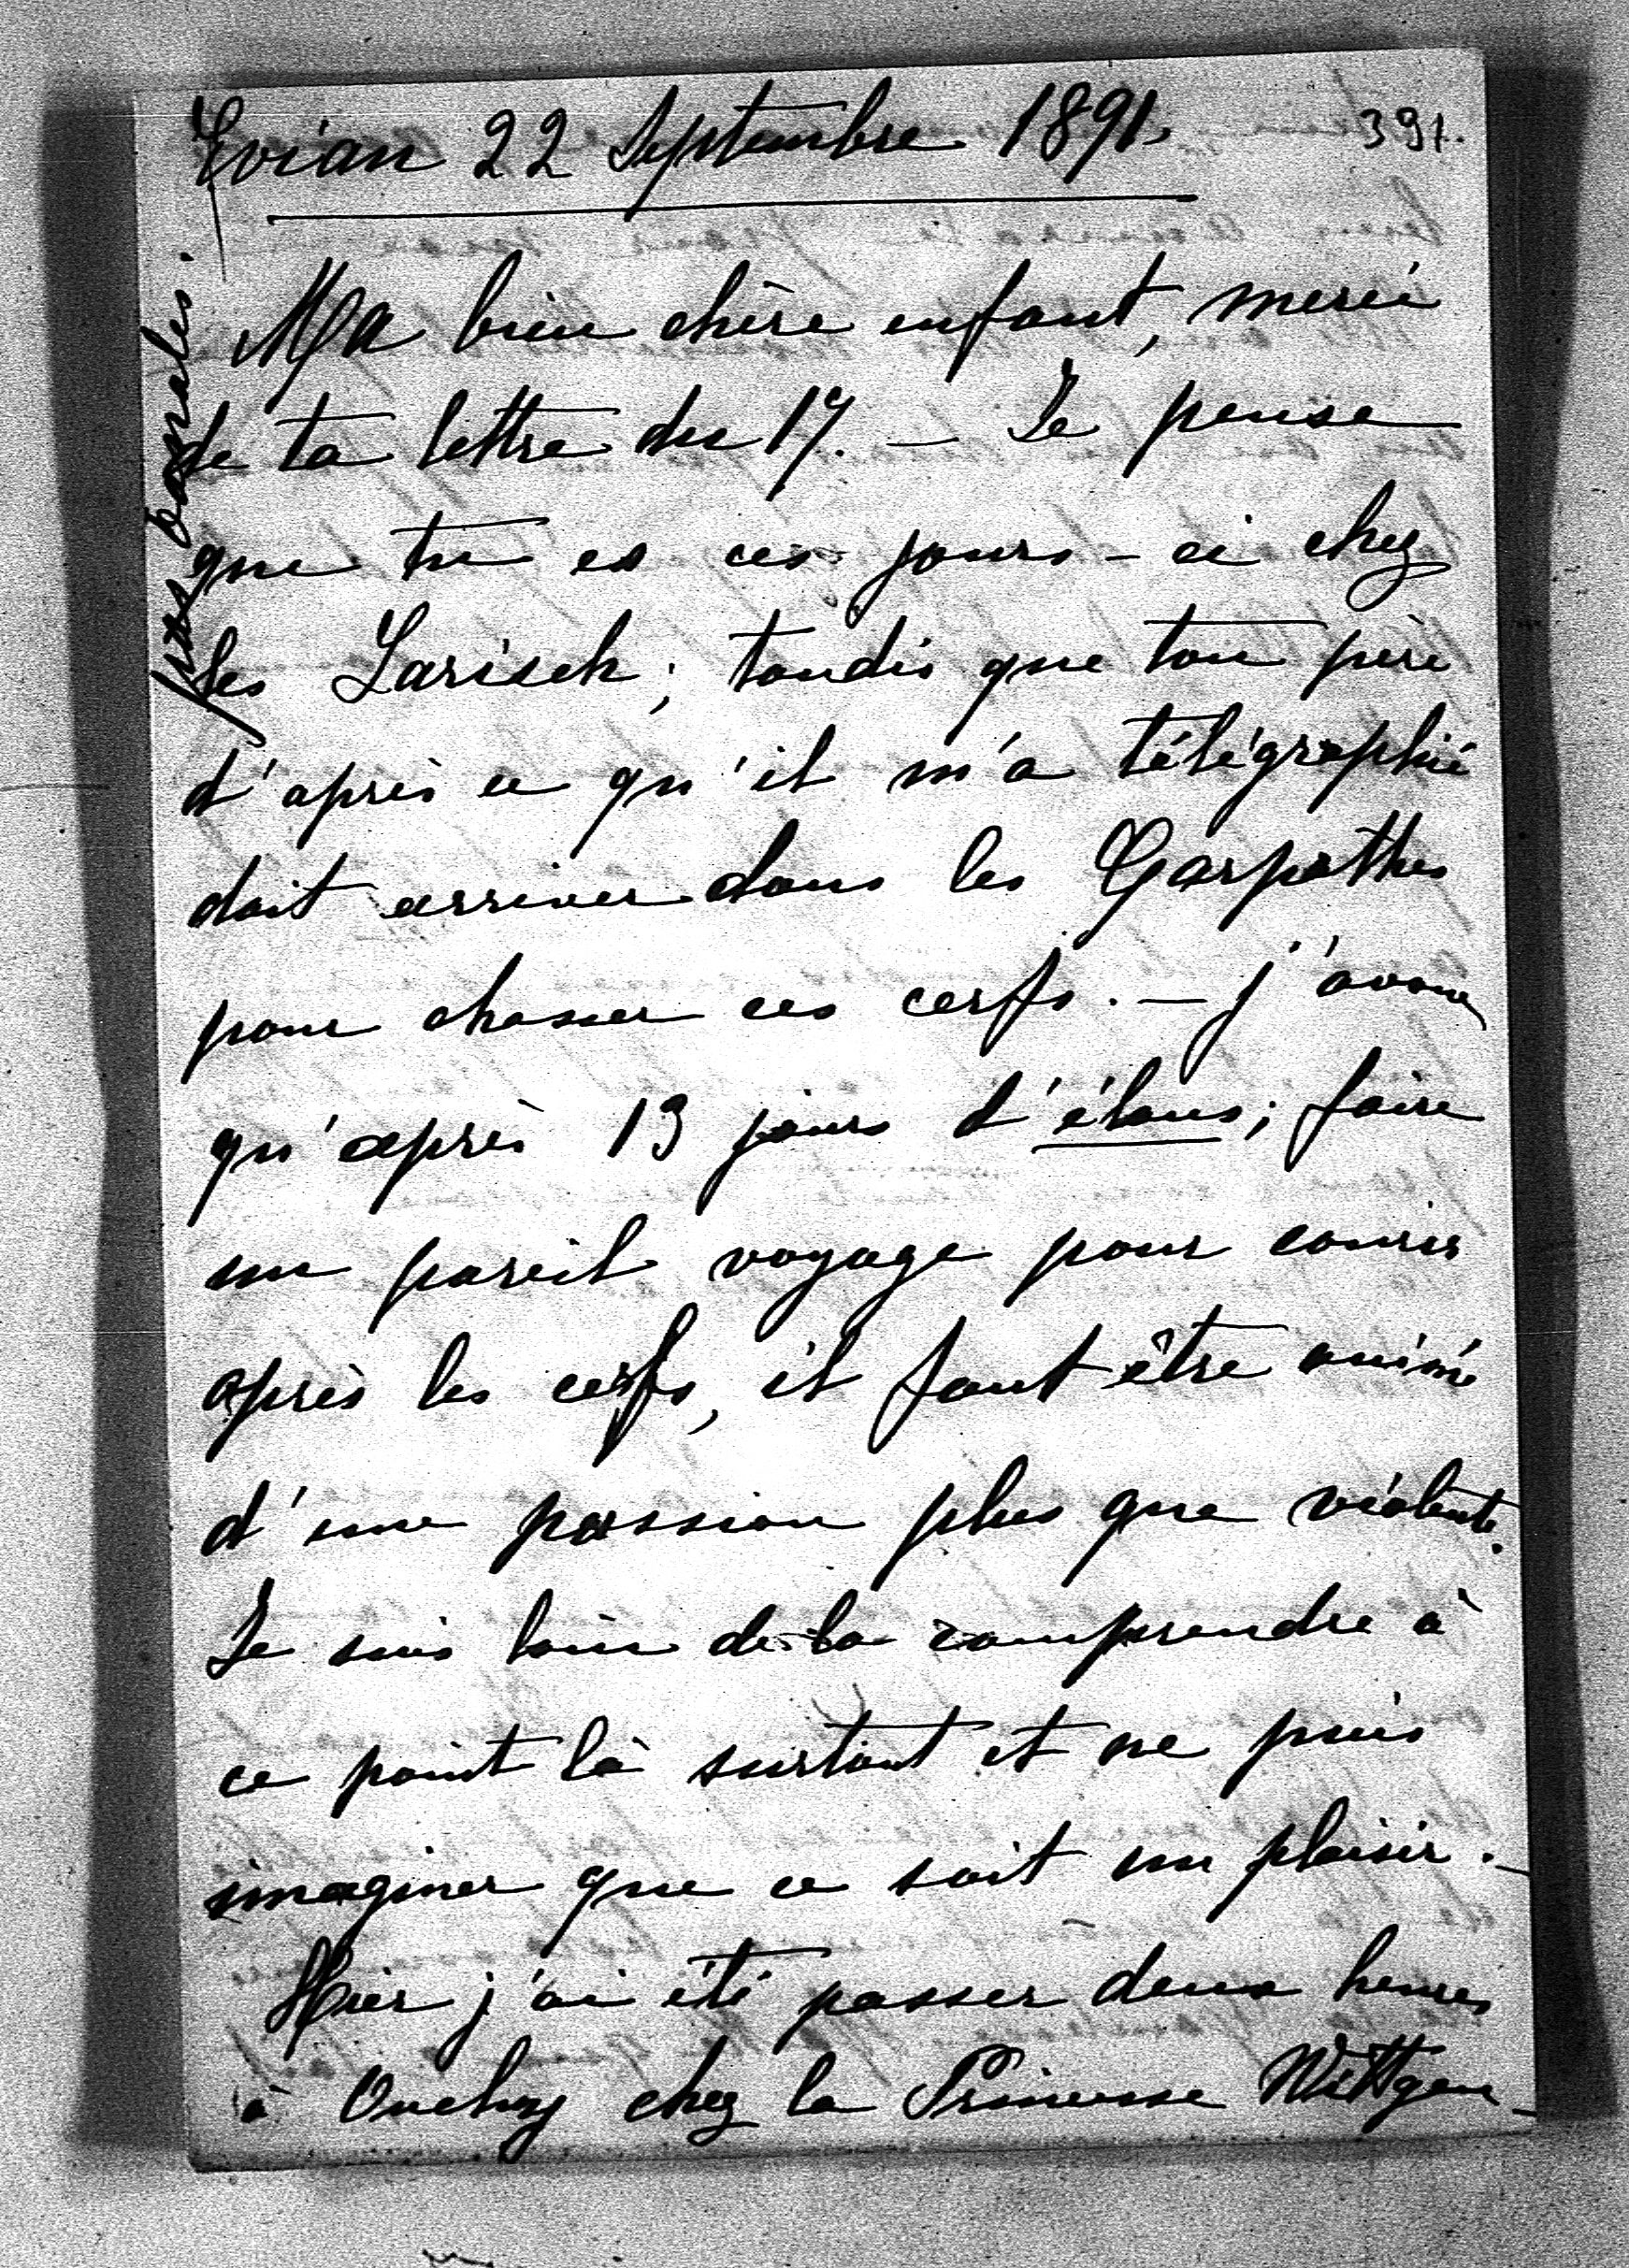 Evian 22 Septembre 1891.
391.
Ma bien chère enfant, merci
de ta lettre du 17. — Je pense
que tu es ces jours-ci chez
les Larisch; tandis que ton père
d'après ce qu'il m'a télégraphié
doit arriver dans les Carpathes
pour chasser ces cerfs. — j'avoue
qu'après 13 jours d'élans; faire
un pareil voyage pour courir
après les cerfs, il faut être animé
d'une passion plus que violente.
Je suis loin de la comprendre à
ce point là surtout et ne puis
imaginer que ce soit un plaisir. —
Hier j'ai été passer deux heures
à Ouchy chez la Princesse Wittgen-